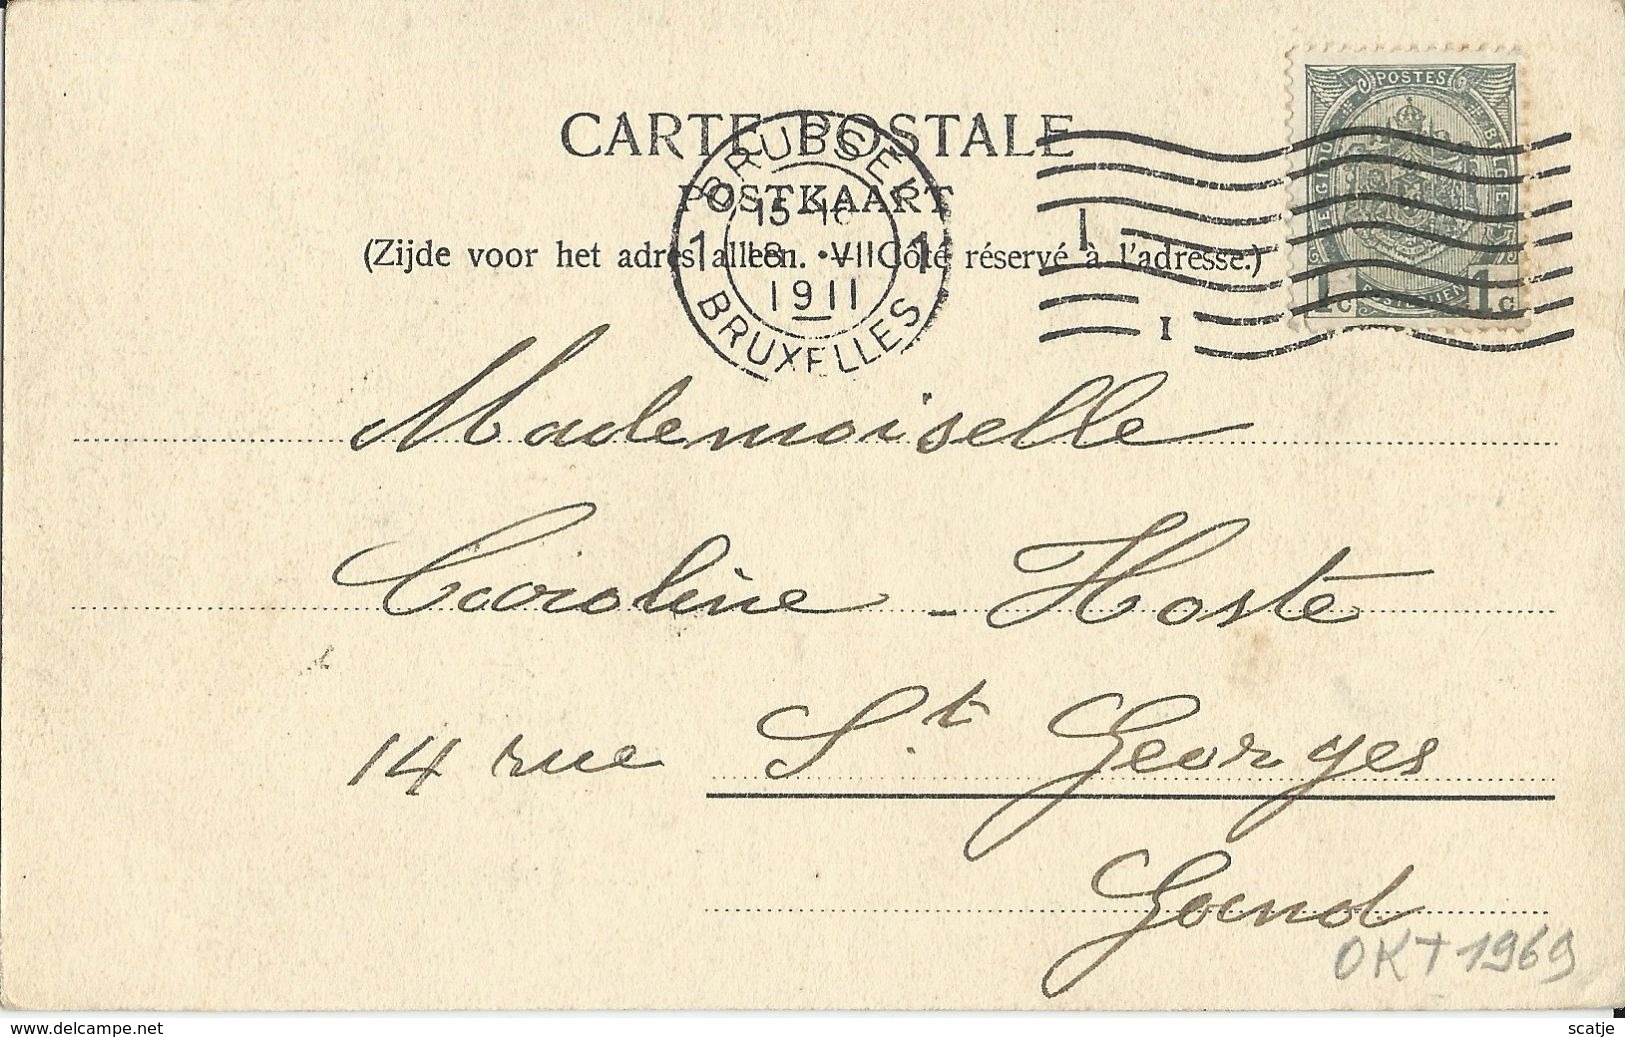 POSTES
CARTE POSTALE
BRUSSEL
POSTKAART
15-16
(Zijde voor het adres alleen. Côté réservé à l'adresse.)
1 18 •VII 1
1911
BRUXELLES
I
I
1c 1c
Mademoiselle
Caroline - Hoste
14 rue St Georges
Gand
OKT 1969
www.delcampe.net
scatje